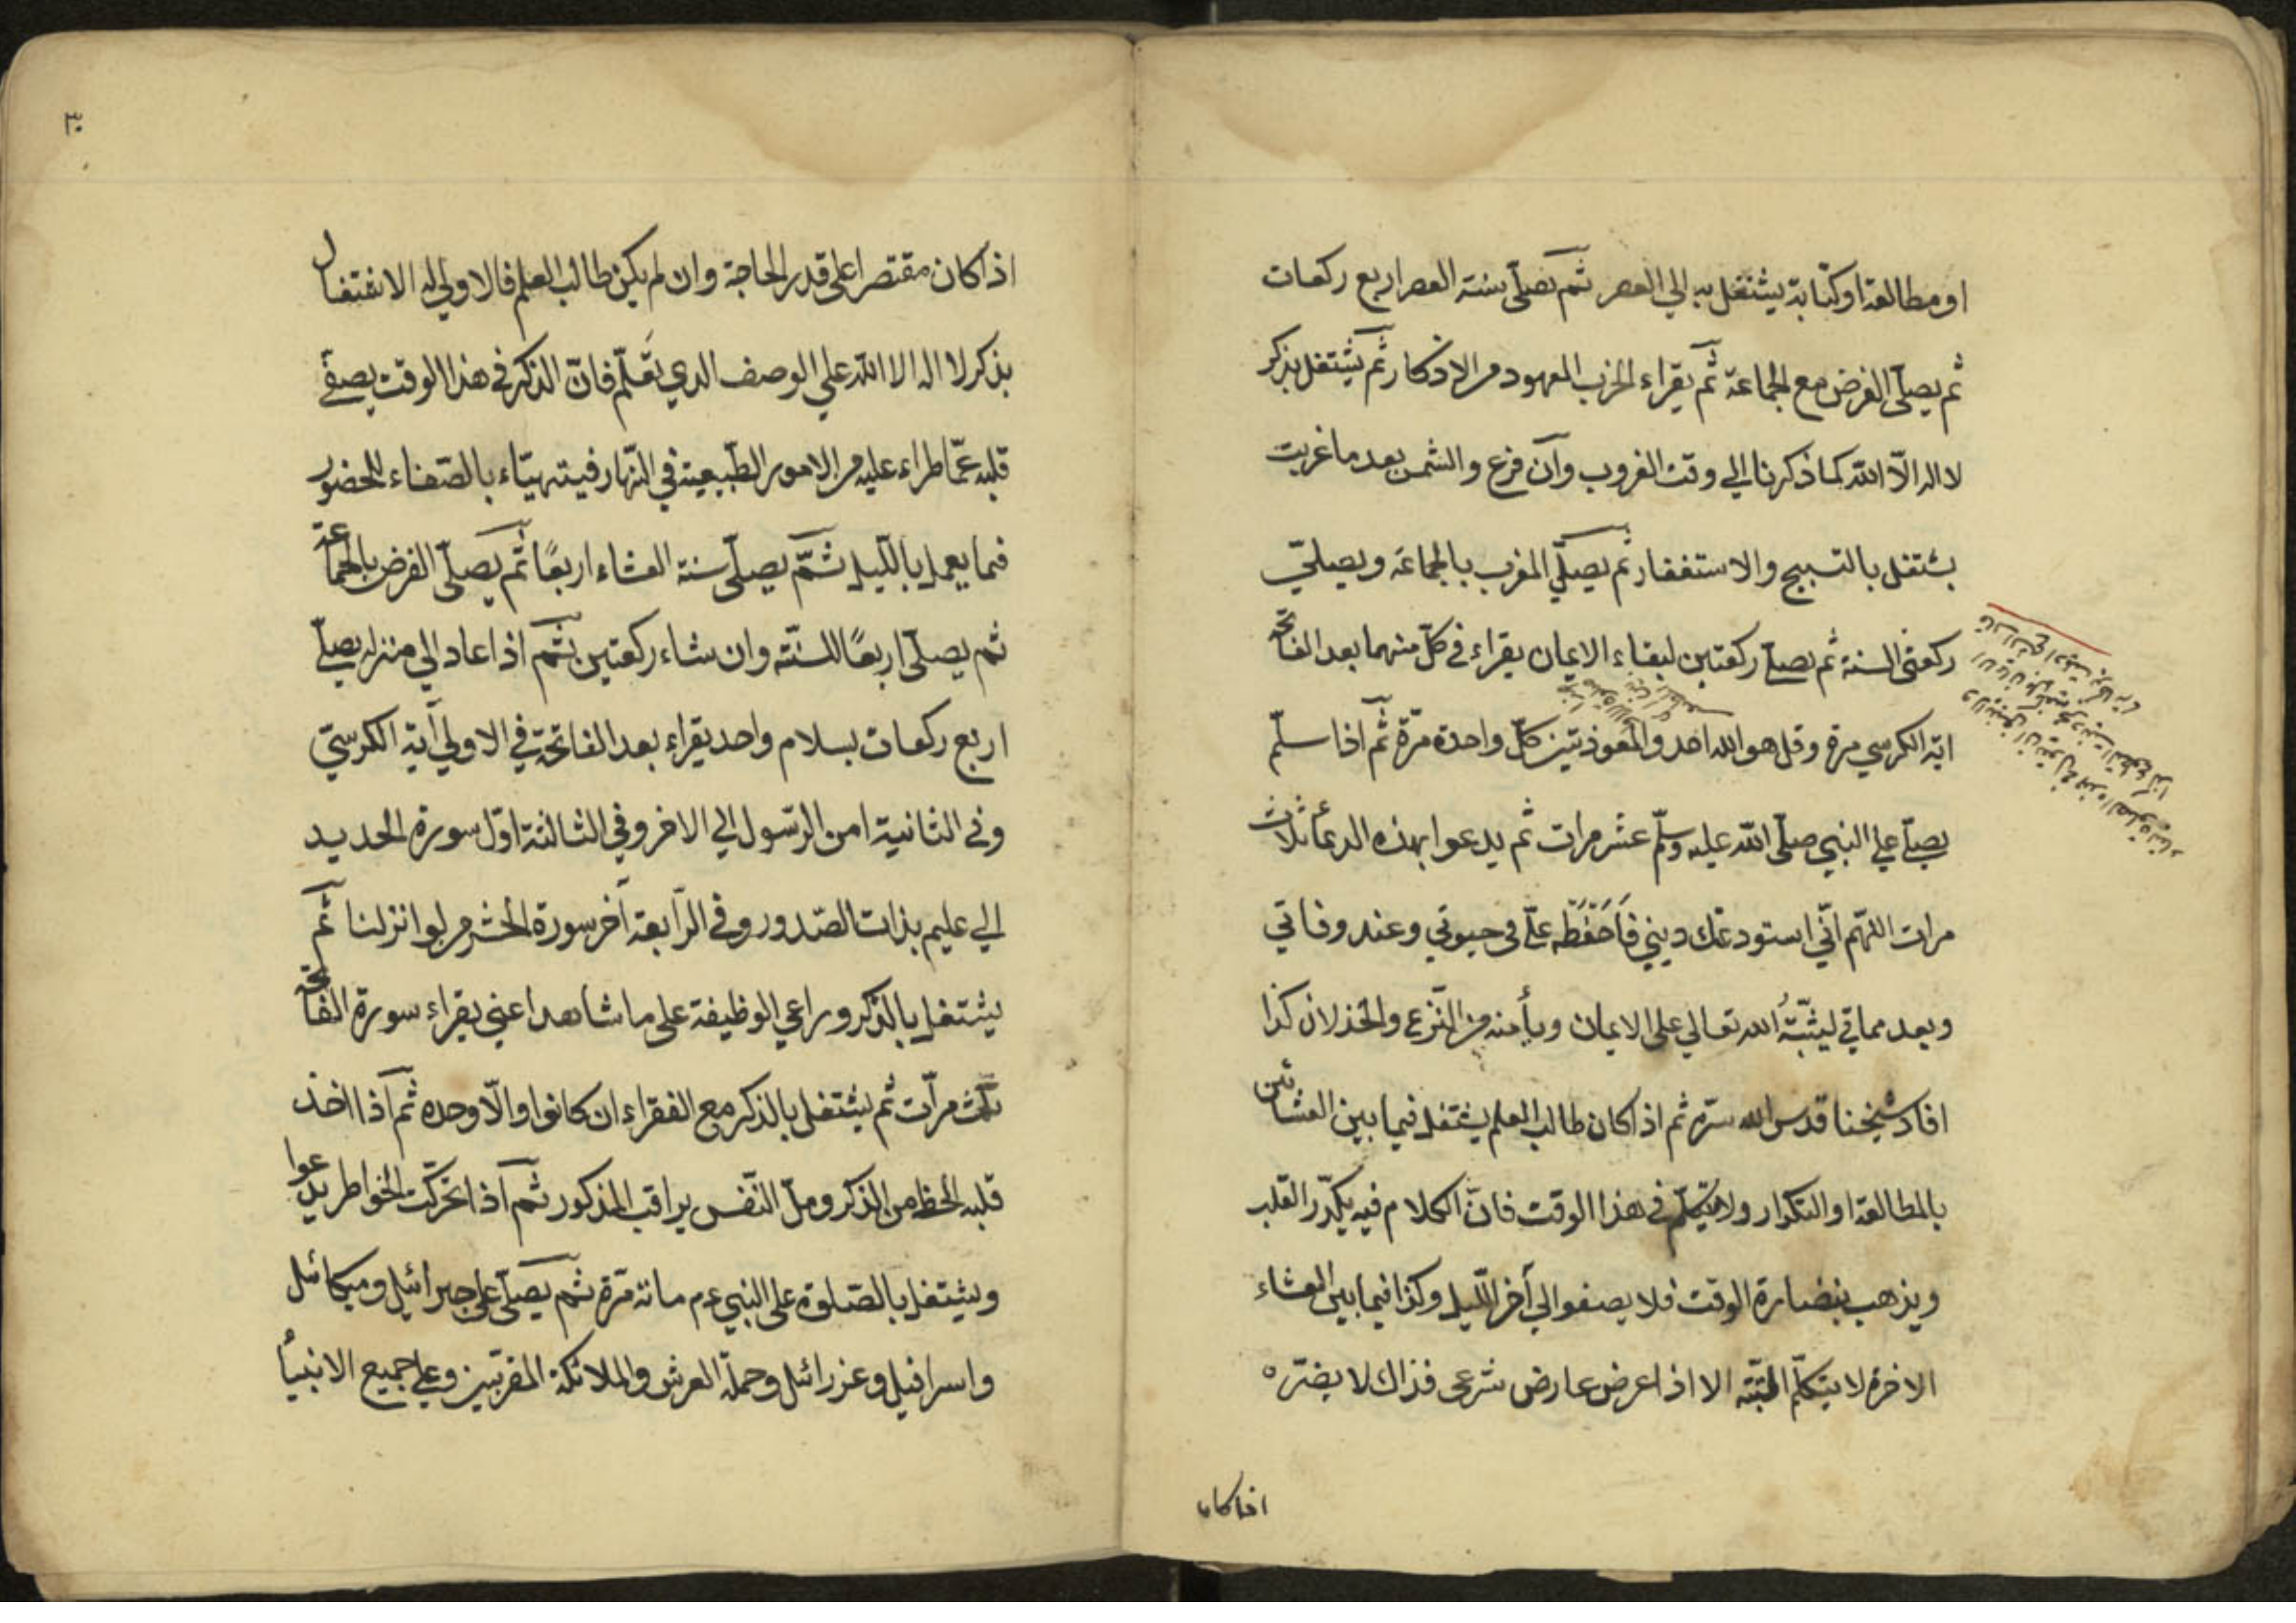 او مطالعة او كتابة يشتغل به الي العصر ثم يصلّي سنة العصر اربع ركعات
ثم يصلّي الفرض مع الجماعة ثم يقراء الحزب المعهود من الاذكار ثم يشتغل بذكر
لا اله الّا الله كما ذكرنا الي وقت الغروب وان فرغ والشمس بعد ما غربت
يشتغل بالتسبيح والاستغفار ثم يصلّي المغرب بالجماعة ويصلّي
ركعتي السنة ثم يصلّي ركعتين لبقاء الايمان يقراء في كلّ منهما بعد الفاتحة
اية الكرسي مرة وقل هو الله احد والمعوذتين كلّ واحدة مرّة ثم اذا سلّم
يصلّي علي النبي صلّي الله عليه وسلّم عشر مرات ثم يدعوا بهذه الدعأ ثلاث
مرات اللهّم انّي استودعك ديني فاحفظه علّي في حيوتي وعند وفاتي
وبعد مماتي ليثبّته الله تعالي علي الايمان ويأمنه من النزع والخذلان كذا
افاد شيخنا قدس الله سرّه ثم اذا كان طالب العلم يشتغل فيما بين العشائين
بالمطالعة او التكرار ولا يتكلّم في هذا الوقت فانّ الكلام فيه يكدّر القلب
ويذهب بنضارة الوقت فلا يصفو الي آخر اللّيل وكذا فيما بين العشاء
الاخرة لا يتكلّم البتّه الا اذا عرض عارض شرعي فذاك لا يضرّه
اذا كان
٣٠
اذا كان مقتصرا علي قدر الحاجة وان لم يكن طالب العلم فالاولي له الاشتغال
بذكر لا اله الا الله علي الوصف الدي تقدّم فانّ الذكر في هذا الوقت يصفّي
قلبه عمّا طراء عليه من الامور الطّبيعية في النّهار فيتهيّاء بالصّفاء للحضور
فيما يعمل باللّيل ثمّ يصلّي سنة العشاء اربعًا ثم يصلّي الفرض بالجماعة
ثم يصلّي اربعًا للسنّه وان شاء ركعتين ثم اذا عاد الي منزله يصلّي
اربع ركعات بسلام واحد يقراء بعد الفاتحة في الاولي آية الكرسّي
وفي الثانية امن الرّسول الي الاخر وفي الثالثة اوّل سورة الحديد
الي عليم بذات الصّدور وفي الرّابعة آخر سورة الحشر من لو انزلنا ثم
يشتغل بالذكر وراعي الوظيفة علي ما شاهد اعني يقراء سورة الفاتحة
ثلث مرّات ثم يشتغل بالذكر مع الفقراء ان كانوا والّا وحده ثم اذا اخذ
قلبه الحظ من الذكر وملّ النّفس يراقب المذكور ثم اذا تحرّكت الخواطر يدعوا
ويشتغل بالصّلوة علي النبي ءم مائة مرّة ثم يصلّي علي جبرائيل وميكائل
واسرافيل وعزرائل وحملة العرش والملائكة المقرّبين وعلي جميع الانبيأ